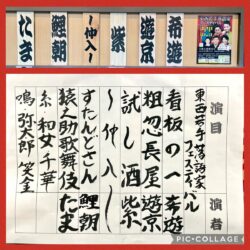 希遊
遊京
紫
〜仲入〜
鯉朝
たま
演目
演者
東西若手落語家
フェスティバル
看板のへ 希遊
粗忽長屋 遊京
試し酒 紫
〜仲入〜
すたんどさん 鯉朝
猿之助歌舞伎 たま
糸 和女 千華
鳴 弥太郎 笑金
PIC•COLLAGE